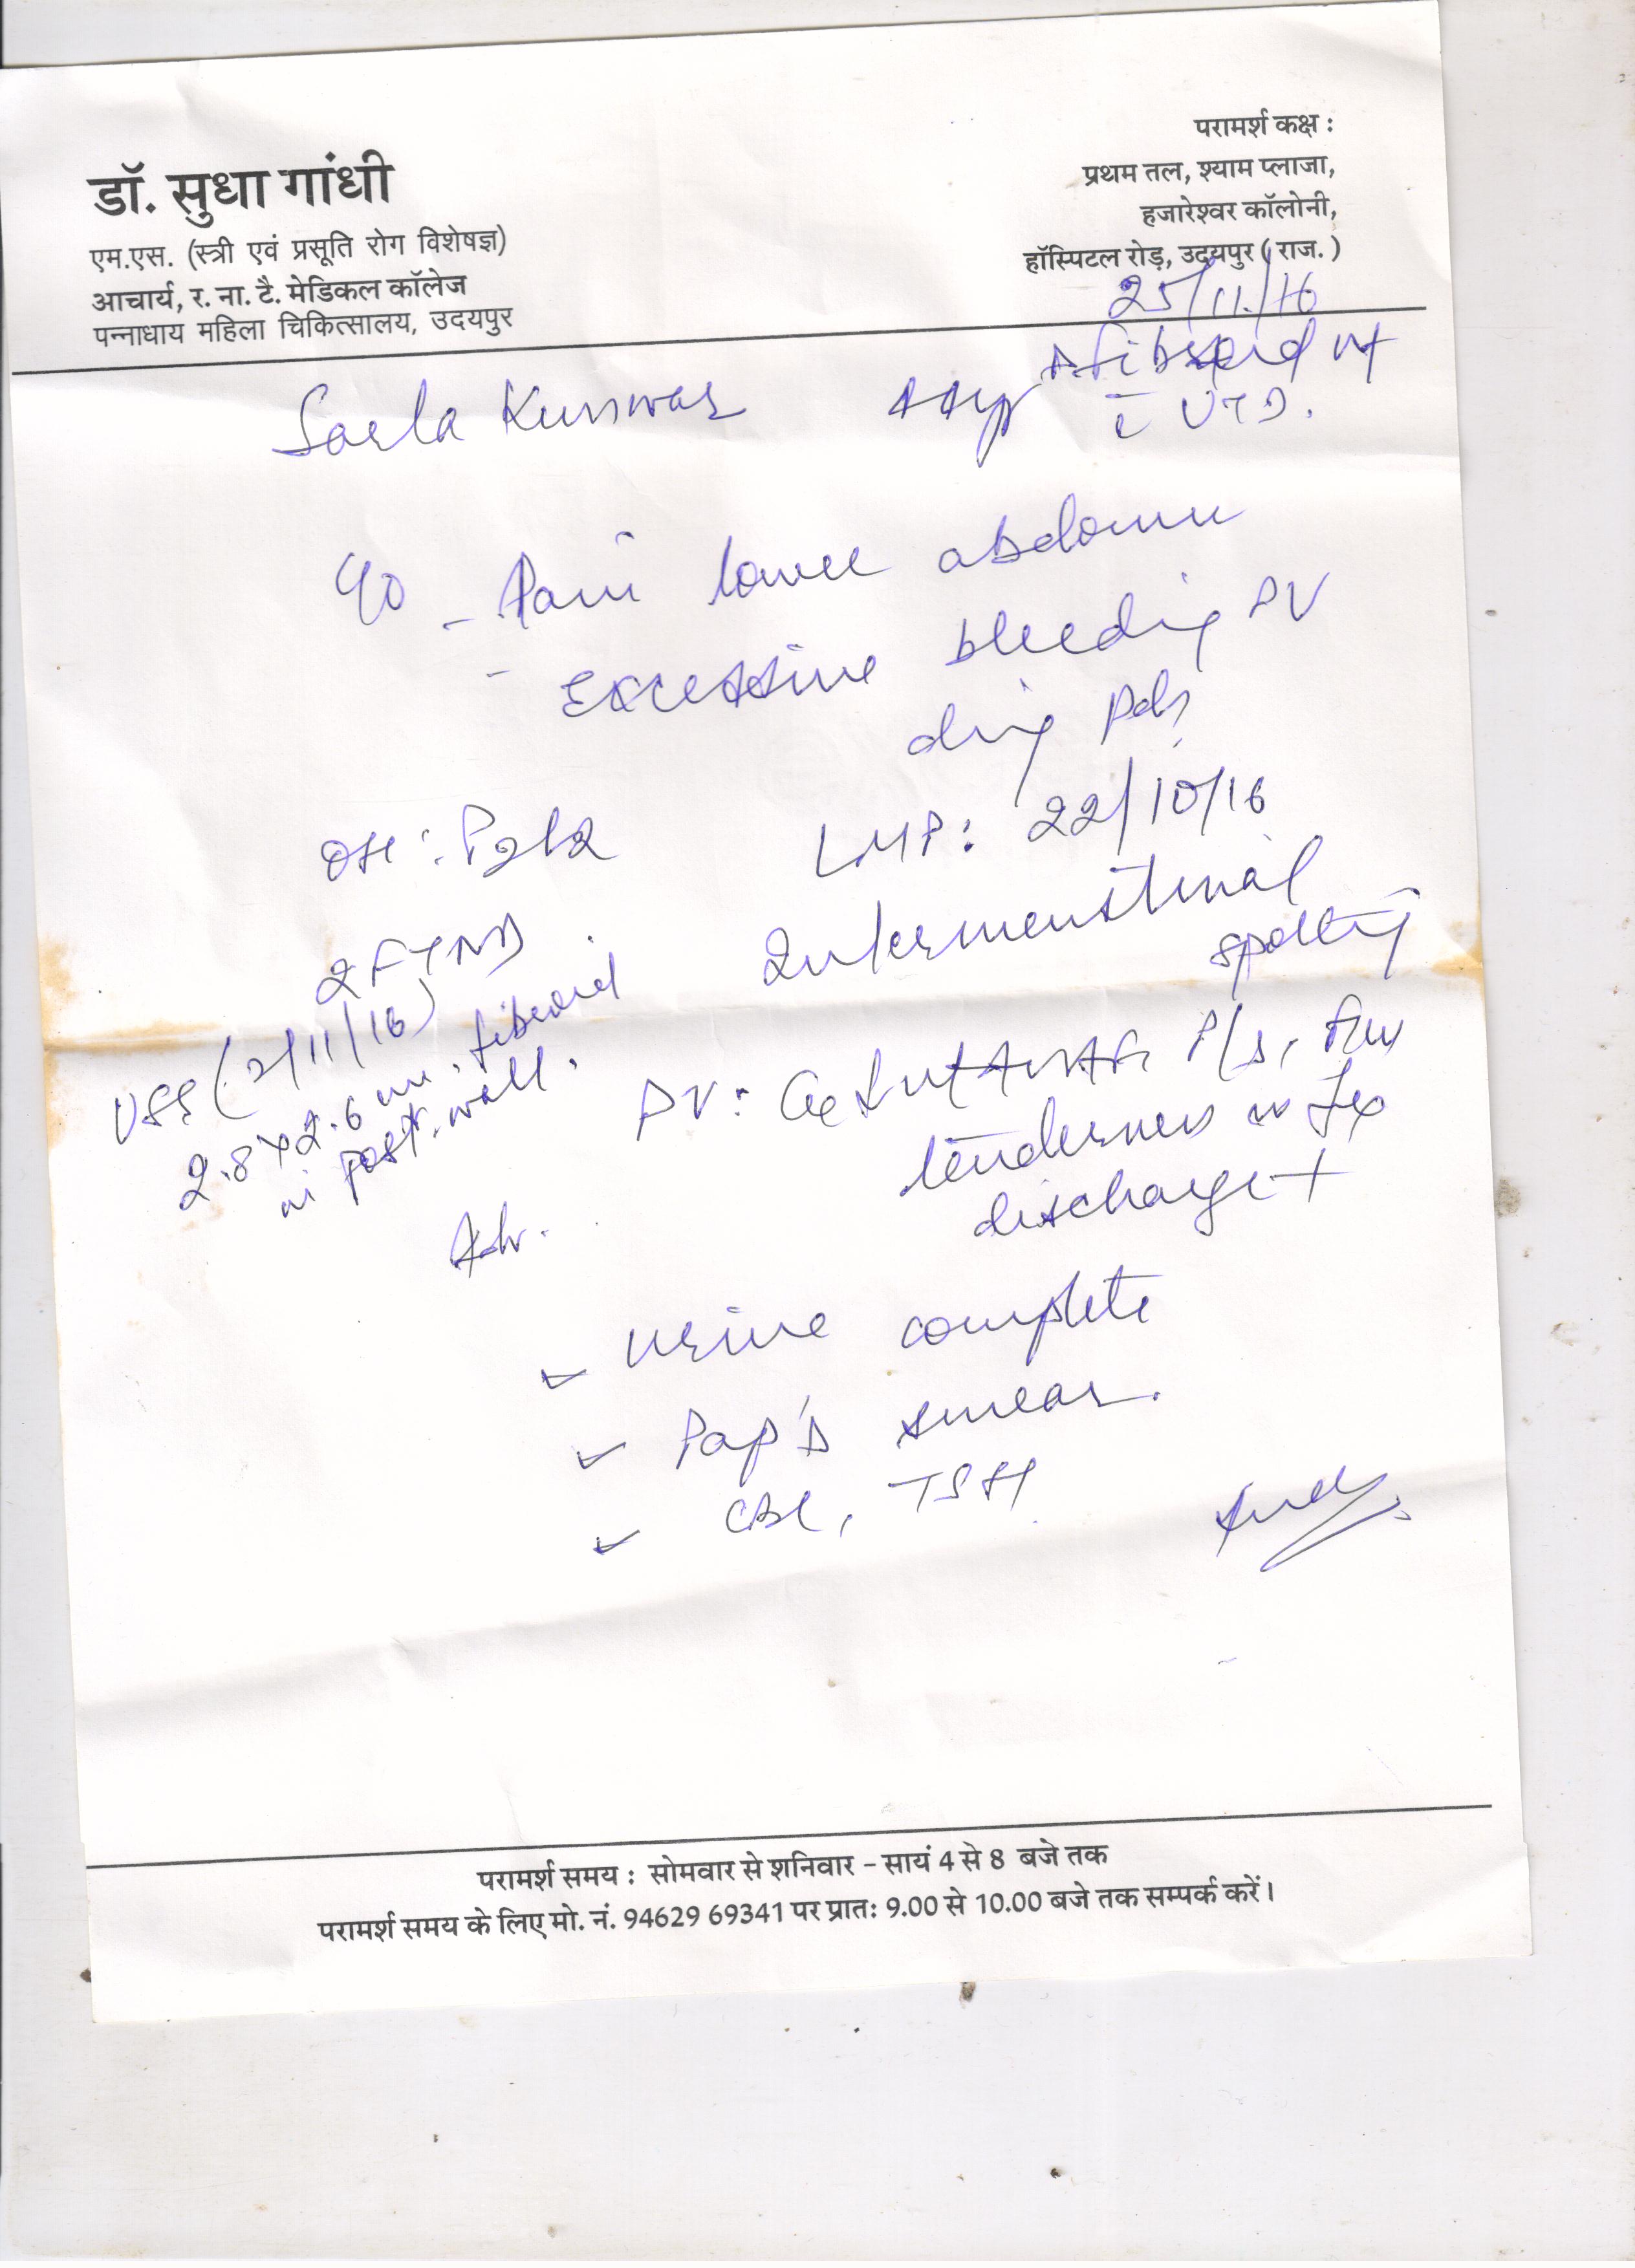 डॉ. सुधा गांधी
एम.एस. (स्त्री एवं प्रसूति रोग विशेषज्ञ)
आचार्य, र. ना. टै. मेडिकल कॉलेज
पन्नाधाय महिला चिकित्सालय, उदयपुर
परामर्श कक्ष :
प्रथम तल, श्याम प्लाजा,
हजारेश्वर कॉलोनी,
हॉस्पिटल रोड़, उदयपुर ( राज. )
25/11/16
fibroid ut
Sarla Kunwar
c/o - Pain lower abdomen
- Excessive bleeding PV
LMP: 22/10/16
OH: P2L2
2 FTND
Intermenstrual
spotting
USG (2/11/16)
2.8 x 2.6 cm. fibroid
in post. wall.
PV:
tenderness in fx
discharge +
Adv.
- Urine complete
- Pap's smear.
- CBC, TSH
परामर्श समय : सोमवार से शनिवार - सायं 4 से 8 बजे तक
परामर्श समय के लिए मो. नं. 94629 69341 पर प्रातः 9.00 से 10.00 बजे तक सम्पर्क करें।